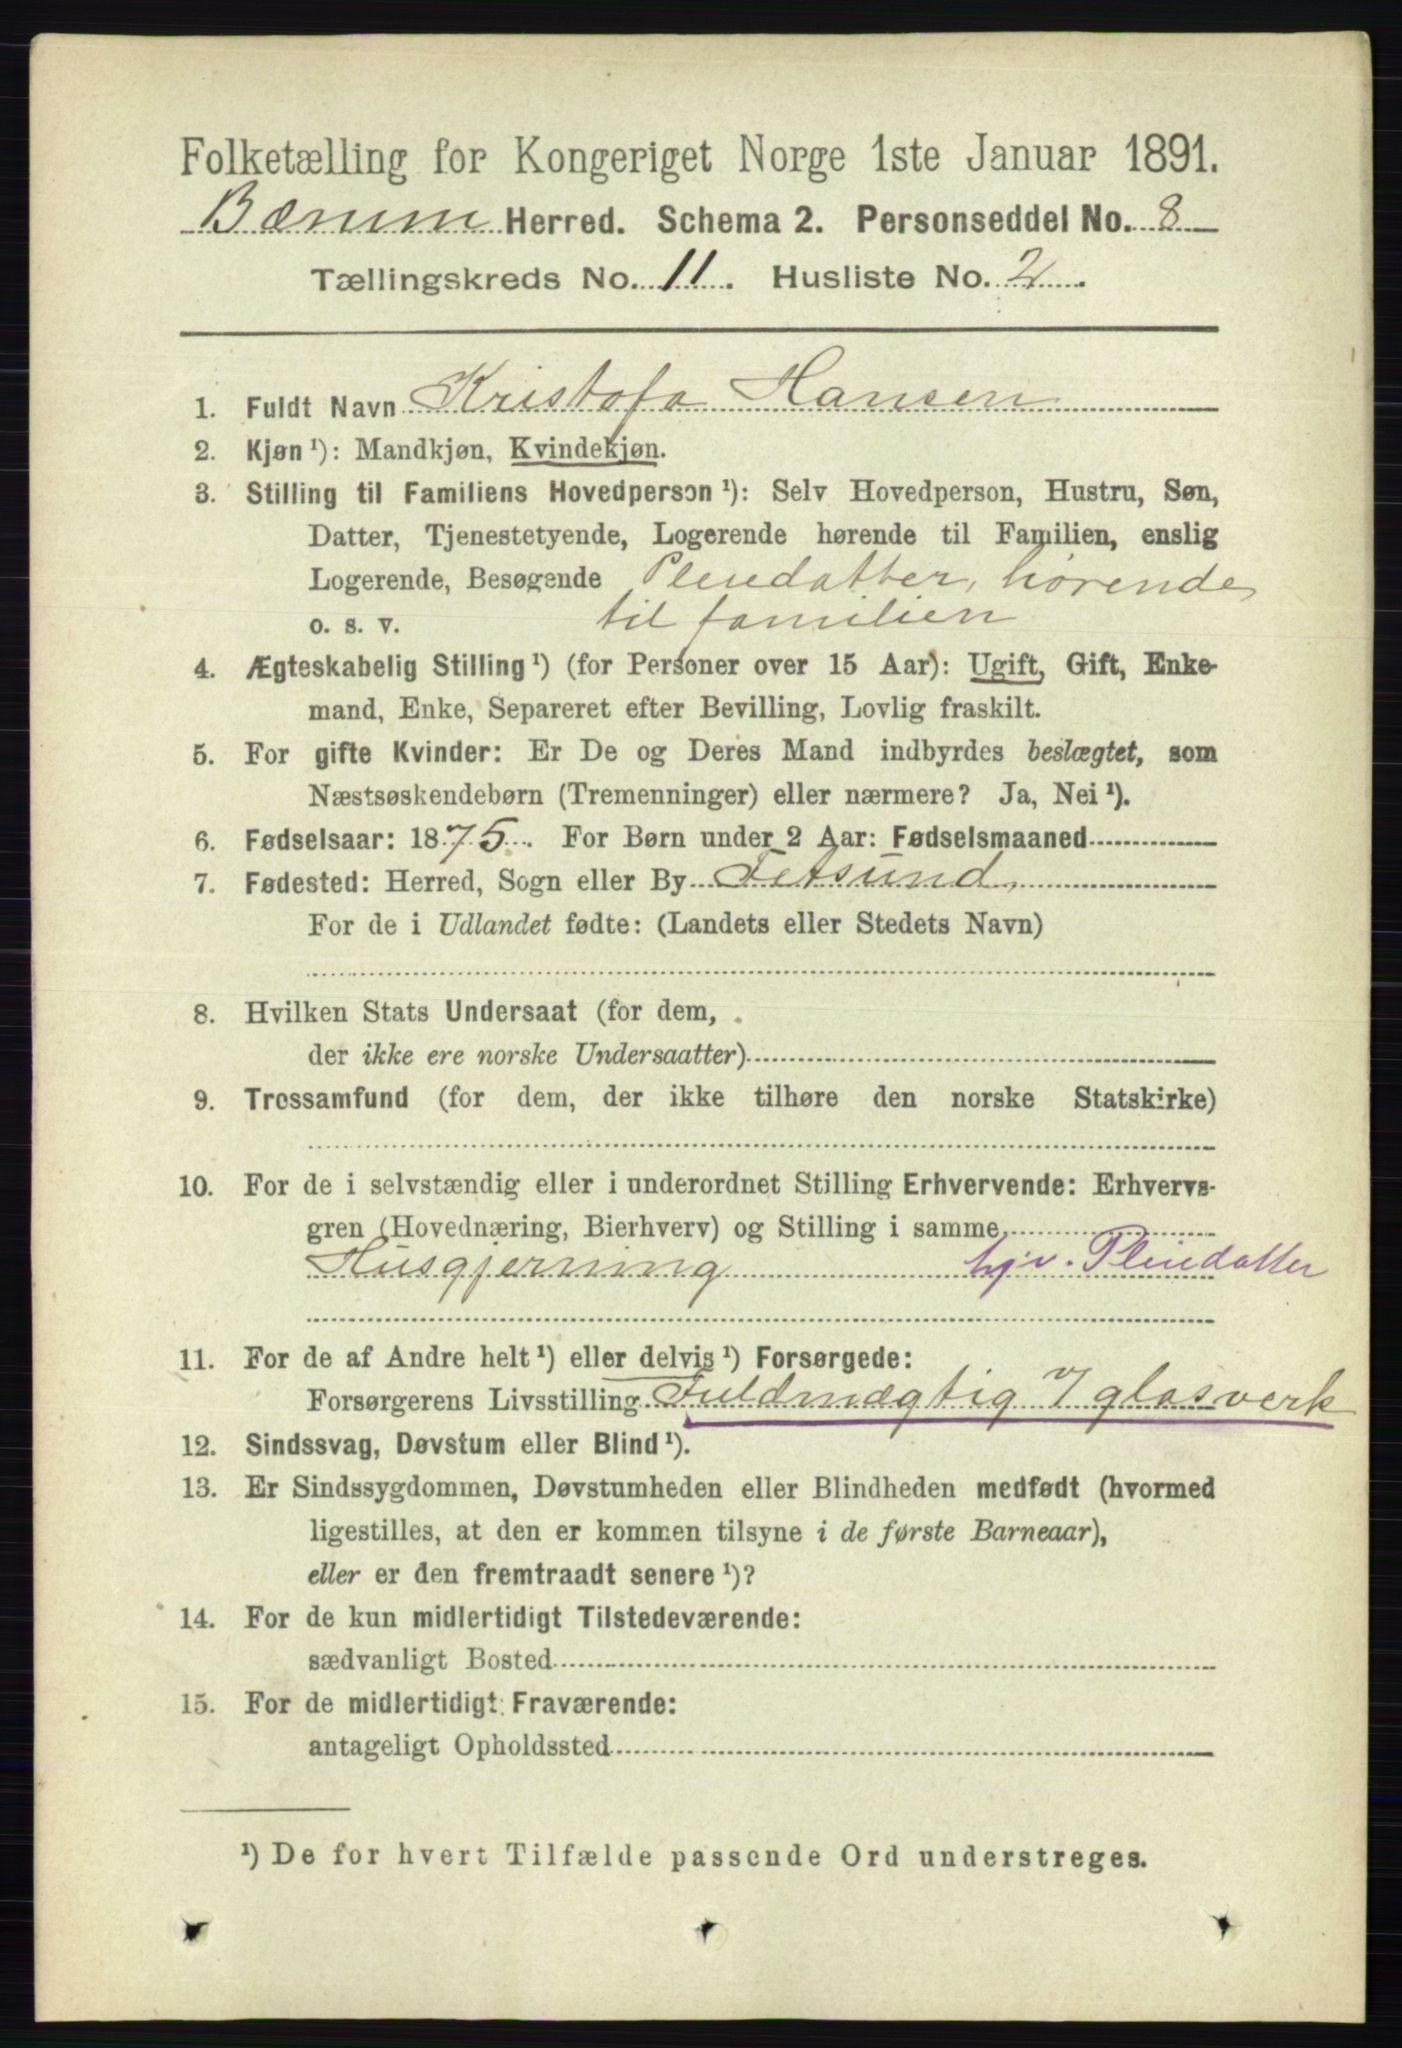 Folketælling for Kongeriget Norge 1ste Januar 1891.
Bærum Herred. Schema 2. Personseddel No. 8
Tællingskreds No. 11. Husliste No. 2.
1. Fuldt Navn Kristofa Hansen
2. Kjøn ¹): Mandkjøn, Kvindekjøn.
3. Stilling til Familiens Hovedperson ¹): Selv Hovedperson, Hustru, Søn,
Datter, Tjenestetyende, Logerende hørende til Familien, enslig
Logerende, Besøgende Pleiedatter, hørende
o. s. v. til familien
4. Ægteskabelig Stilling ¹) (for Personer over 15 Aar): Ugift, Gift, Enke-
mand, Enke, Separeret efter Bevilling, Lovlig fraskilt.
5. For gifte Kvinder: Er De og Deres Mand indbyrdes beslægtet, som
Næstsøskendebørn (Tremenninger) eller nærmere? Ja, Nei ¹).
6. Fødselsaar: 1875. For Børn under 2 Aar: Fødselsmaaned
7. Fødested: Herred, Sogn eller By Fetsund,
For de i Udlandet fødte: (Landets eller Stedets Navn)
8. Hvilken Stats Undersaat (for dem,
der ikke ere norske Undersaatter)
9. Trossamfund (for dem, der ikke tilhøre den norske Statskirke)
10. For de i selvstændig eller i underordnet Stilling Erhvervende: Erhvervs-
gren (Hovednæring, Bierhverv) og Stilling i samme
Husgjerning hjv. Pleiedatter
11. For de af Andre helt ¹) eller delvis ¹) Forsørgede:
Forsørgerens Livsstilling Fuldmægtig / glasverk
12. Sindssvag, Døvstum eller Blind ¹).
13. Er Sindssygdommen, Døvstumheden eller Blindheden medfødt (hvormed
ligestilles, at den er kommen tilsyne i de første Barneaar),
eller er den fremtraadt senere ¹)?
14. For de kun midlertidigt Tilstedeværende:
sædvanligt Bosted
15. For de midlertidigt Fraværende:
antageligt Opholdssted
¹) De for hvert Tilfælde passende Ord understreges.